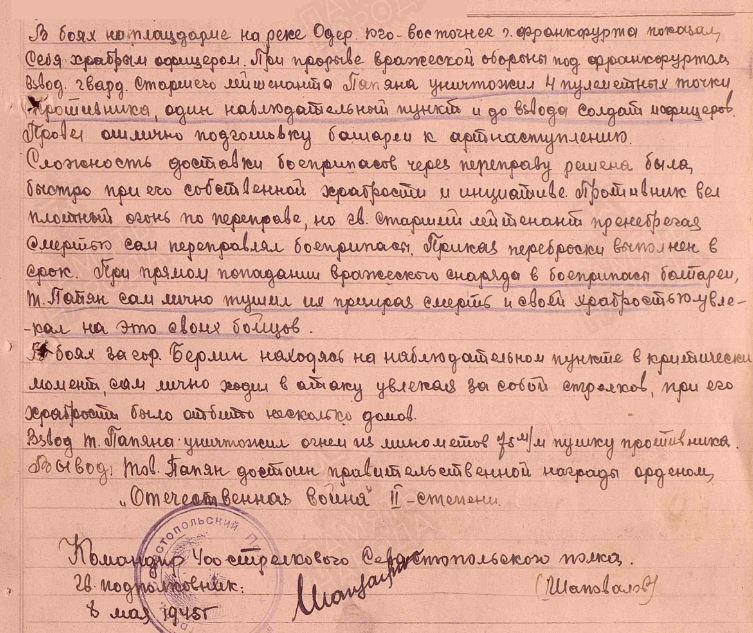 В боях на плацдарме на реке Одер, юго-восточнее г. Франкфурта показал
себя храбрым офицером. При прорыве вражеской обороны под Франкфуртом
взвод гвард. старшего лейтенанта Папяна уничтожил 4 пулеметных точки
противника, один наблюдательный пункт и до взвода солдат и офицеров.
Провел отлично подготовку батареи к артнаступлению.
Сложность доставки боеприпасов через переправу решена была,
быстро при его собственной храбрости и инициативе. Противник вел
плотный огонь по переправе, но гв. старший лейтенант пренебрегая
смертью сам переправлял боеприпасы. Приказ переброски выполнен в
срок. При прямом попадании вражеского снаряда в боеприпасы батареи,
т. Папян сам лично тушил их презирая смерть и своей храбростью увле-
-кал на это своих бойцов.
В боях за гор. Берлин находясь на наблюдательном пункте в критически
момент, сам лично ходил в атаку увлекая за собой стрелков, при его
храбрости было отбито несколько домов.
Взвод т. Папяна уничтожил огнем из минометов 75 м/м пушку противника.
Вывод: тов. Папян достоин правительственной награды орденом,
„Отечественная война" II-степени.
Командир 400 стрелкового Севастопольского полка.
Гв. подполковник:
(Шаповалов)
8 мая 1945г